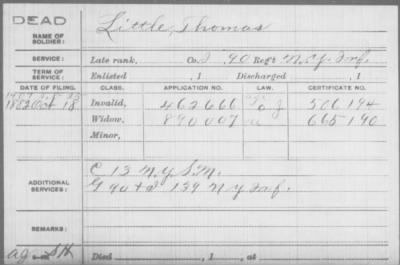 DEAD
NAME OF SOLDIER: Little, Thomas
SERVICE: Late rank, Co. I, 90 Reg't N.Y. Inf.
TERM OF SERVICE: Enlisted , 1 Discharged , 1
DATE OF FILING. CLASS. APPLICATION NO. LAW. CERTIFICATE NO.
1882 Oct 18 Invalid, 462666 506194
Widow, 890007 665190
Minor,
ADDITIONAL SERVICES: C 13 N.Y. S.M.
G 90 + I 139 N Y Inf.
REMARKS:
Died , 1 , at